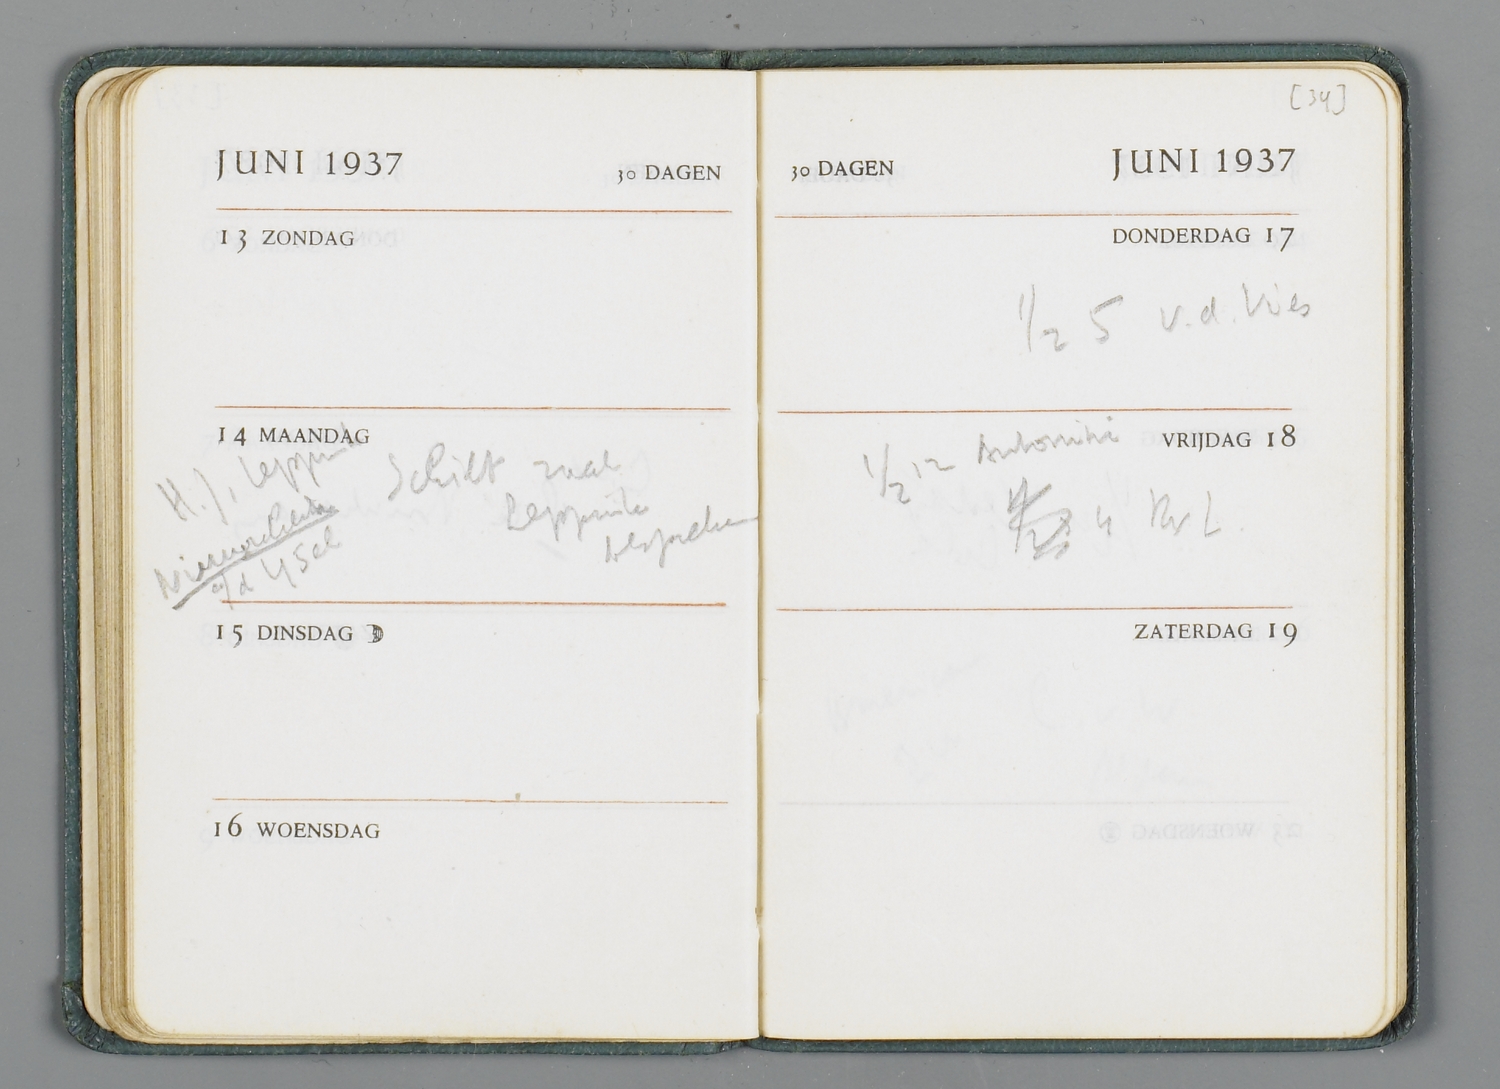 JUNI 1937 30 DAGEN
13 ZONDAG
14 MAANDAG
H. J. Leppink
Nieuwerkerk
a/d IJsel
Schilt zaal
Leppink
bespreken
15 DINSDAG
16 WOENSDAG
[34]
30 DAGEN JUNI 1937
DONDERDAG 17
1/2 5 v. d. Vies
VRIJDAG 18
1/2 12
4
ZATERDAG 19